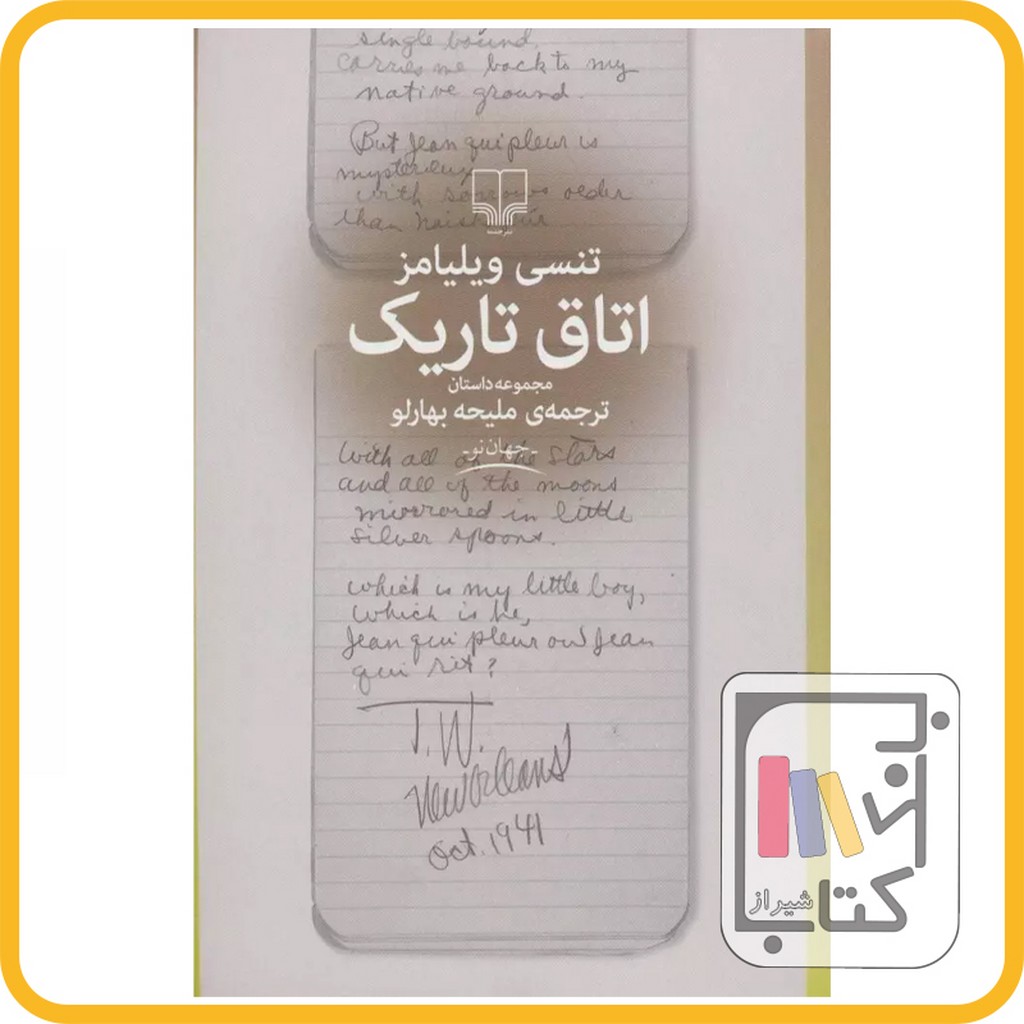 single bound
carries me back to my
native ground.
But Jean qui pleur is
mysterieux
with sorrows older
than
نشر چشمه
تنسی ویلیامز
اتاق تاریک
مجموعه داستان
ترجمه‌ی ملیحه بهارلو
-جهان نو-
With all of the stars
and all of the moons
mirrored in little
silver spoons.
which is my little boy,
which is he,
Jean qui pleur ou Jean
qui rit?
T.W.
New Orleans
Oct. 1941
بانک
کتاب
شیراز